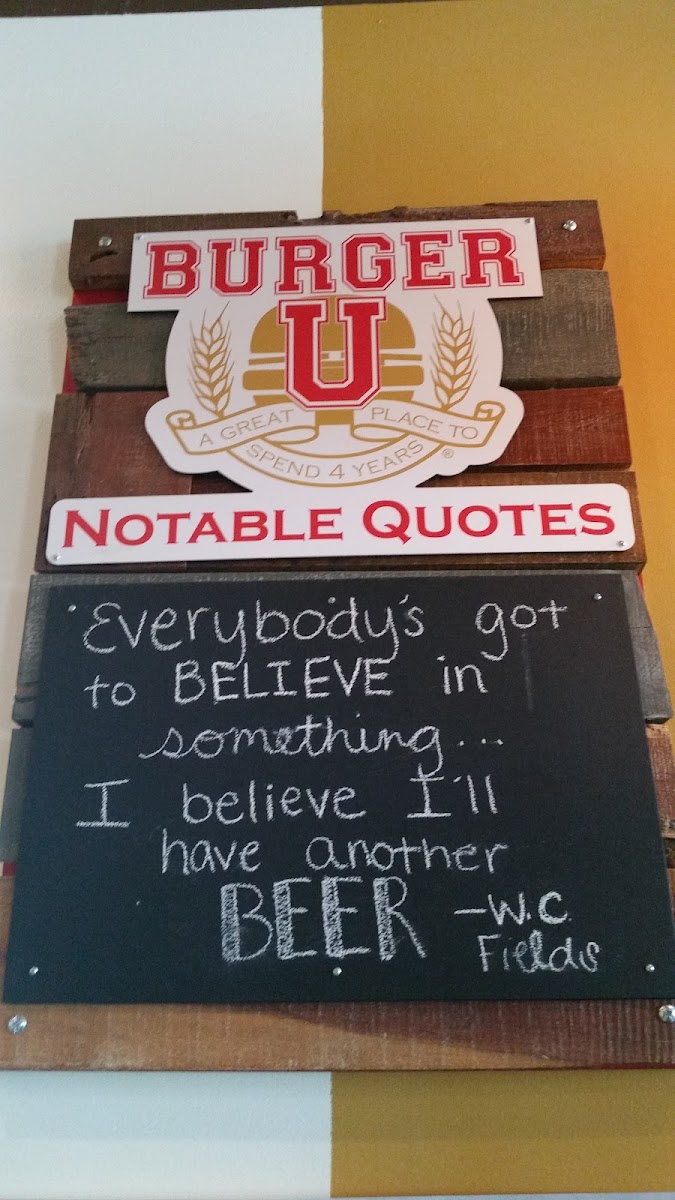 BURGER
U
A GREAT PLACE TO
SPEND 4 YEARS ®
NOTABLE QUOTES
Everybody's got
to BELIEVE in
something...
I believe I'll
have another
BEER -W.C.
Fields